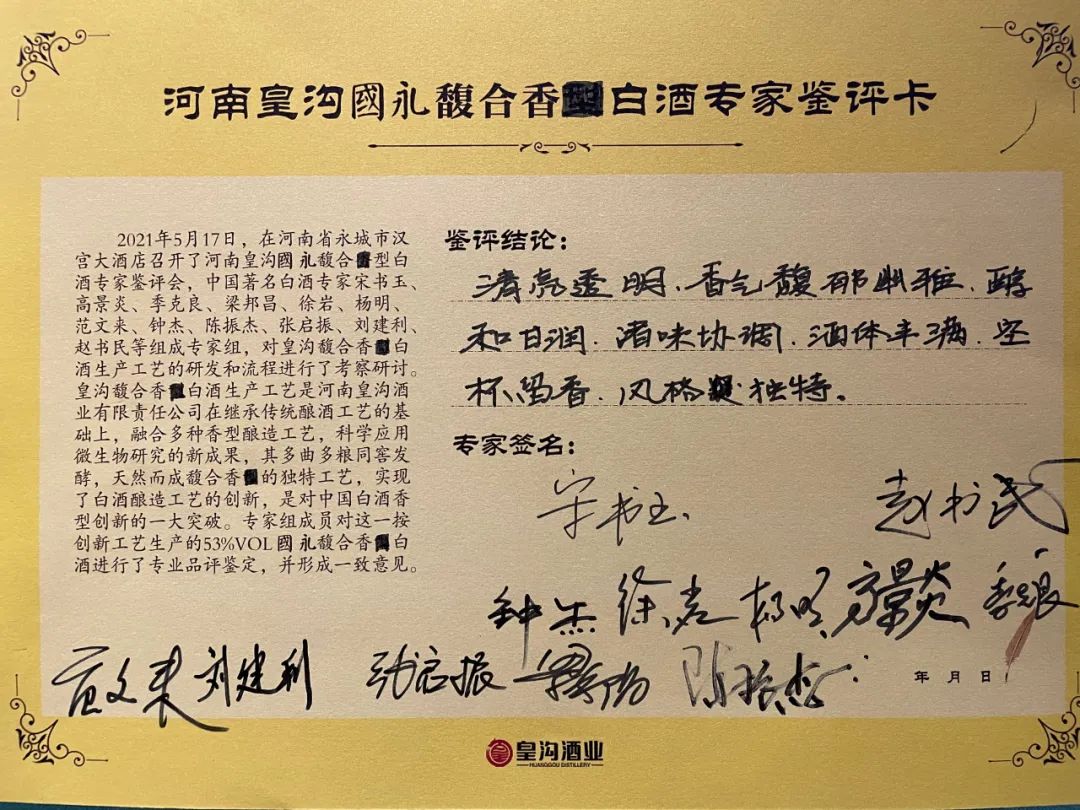 河南皇沟國永馥合香白酒专家鉴评卡
2021年5月17日，在河南省永城市汉
宫大酒店召开了河南皇沟國永馥合香型白
酒专家鉴评会，中国著名白酒专家宋书玉、
高景炎、季克良、梁邦昌、徐岩、杨明、
范文来、钟杰、陈振杰、张启振、刘建利、
赵书民等组成专家组，对皇沟馥合香白
酒生产工艺的研发和流程进行了考察研讨。
皇沟馥合香白酒生产工艺是河南皇沟酒
业有限责任公司在继承传统酿酒工艺的基
础上，融合多种香型酿造工艺，科学应用
微生物研究的新成果，其多曲多粮同窖发
酵，天然而成馥合香的独特工艺，实现
了白酒酿造工艺的创新，是对中国白酒香
型创新的一大突破。专家组成员对这一按
创新工艺生产的53%VOL國永馥合香白
酒进行了专业品评鉴定，并形成一致意见。
鉴评结论：
清亮透明、香气馥郁幽雅、醇
和甘润、诸味协调、酒体丰满、空
杯留香、风格独特。
专家签名：
宋书玉 赵书民
钟杰 徐岩 杨明 高景炎 季克良
范文来 刘建利 张启振 梁邦昌 陈振杰
年 月 日
皇沟酒业
HUANGGOU DISTILLERY